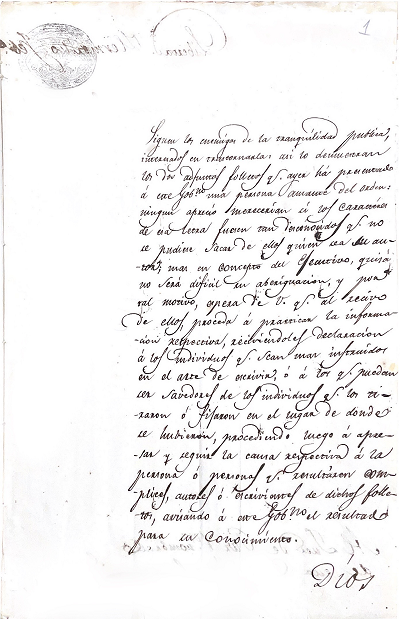 1
Siguen los enemigos de la tranquilidad publica,
interesados en trastornarla: asi lo demuestran
los dos adjuntos folletos q.e ayer há presentado
á este Gob.no una persona amante del orden:
ningun aprecio merecerian si los caracteres
de su letra fuesen tan desconosidos q.e no
se pudiese sacar de ellos quien sea su au-
-tor; mas en concepto del Ejecutivo, quisá
no será dificil su aberiguacion, y por
tal motivo, opera de V. q.e al recivo
de ellos proceda á practicar la informa-
-cion respectiva, reciviendoles declaracion
á los individuos q.e sean mas instruidos
en el arte de escrivir, ó á los q.e puedan
ser savedores de los individuos q.e los ti-
-raron ó fijaron en el lugar de donde
se hubieron, procediendo luego á apre-
-sar y seguir la causa respectiva á la
persona ó personas q.e resultaren com-
-plices, autores ó escrivientes de dichos folle-
-tos, avisando á este Gob.no el resultado
para su conocimiento.
Dios